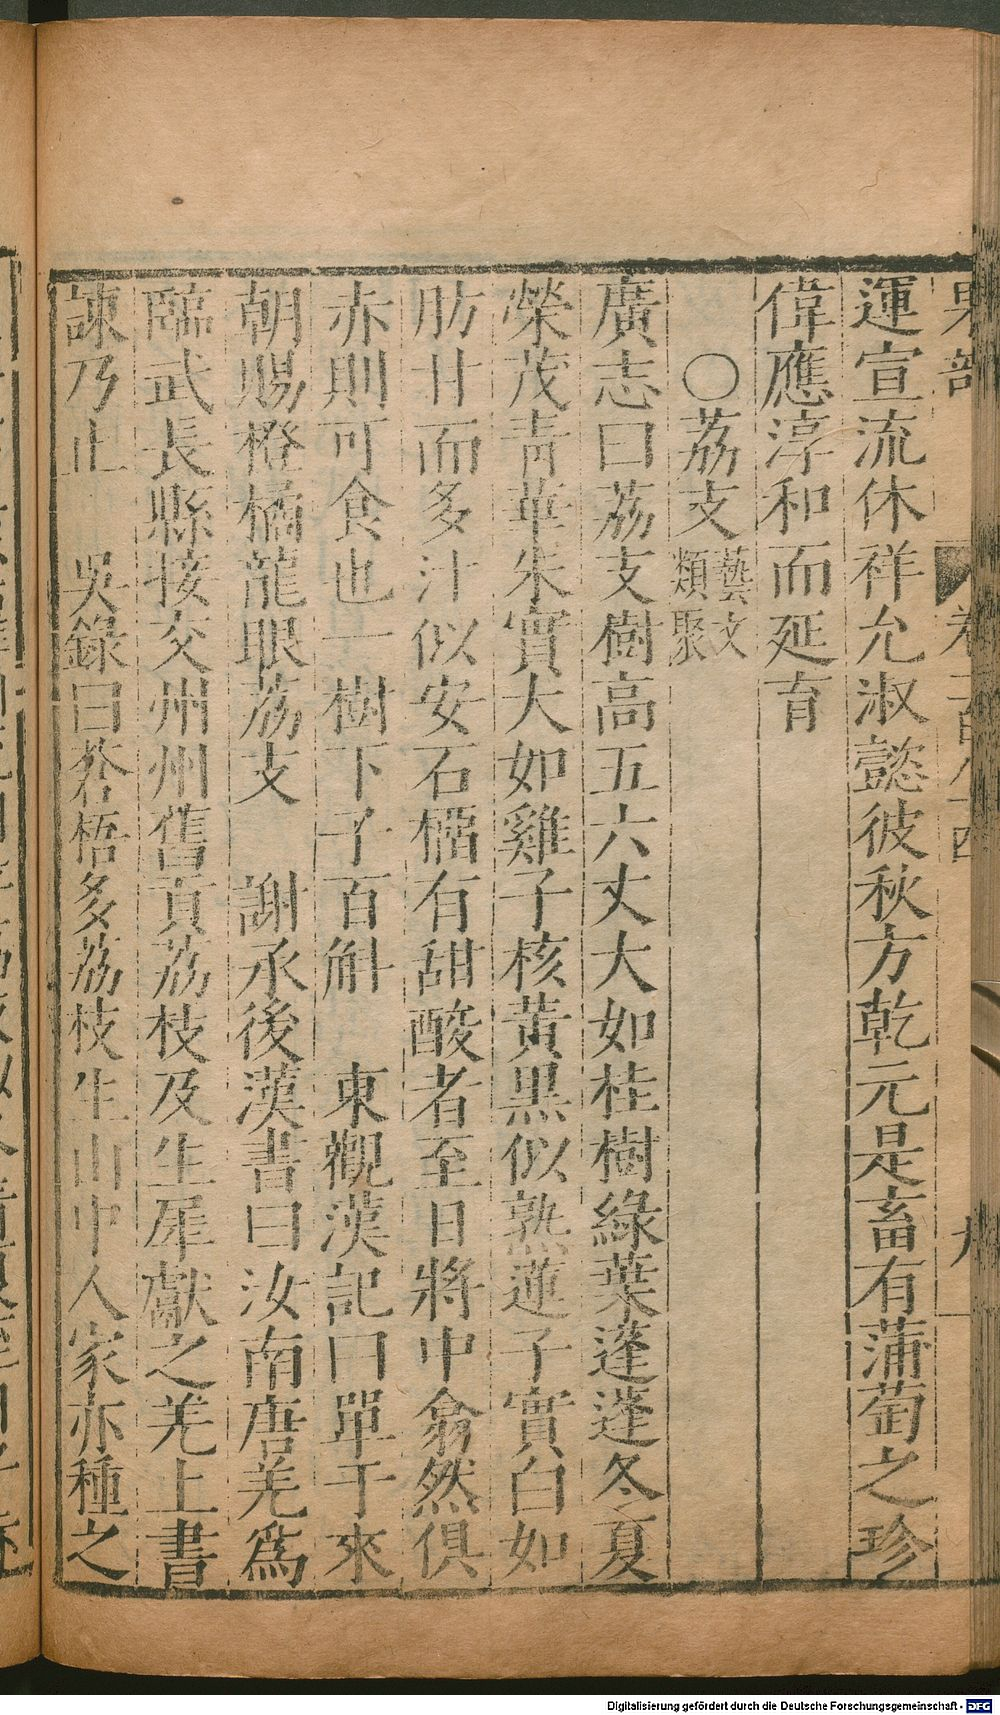 果部 卷三百八十四 九
運宣流休祥允淑懿彼秋方乾元是畜有蒲萄之珍
偉應淳和而延育
○荔支 藝文類聚
廣志曰荔支樹高五六丈大如桂樹綠葉蓬蓬冬夏
榮茂青華朱實大如雞子核黃黑似熟蓮子實白如
肪甘而多汁似安石橊有甜酸者至日將中翕然俱
赤則可食也一樹下子百斛 東觀漢記曰單于來
朝賜橙橘龍眼荔支 謝承後漢書曰汝南唐羌爲
臨武長縣接交州州舊貢荔枝及生犀獻之羌上書
諫乃止 吳錄曰蒼梧多荔枝生山中人家亦種之
Digitalisierung gefördert durch die Deutsche Forschungsgemeinschaft - DFG